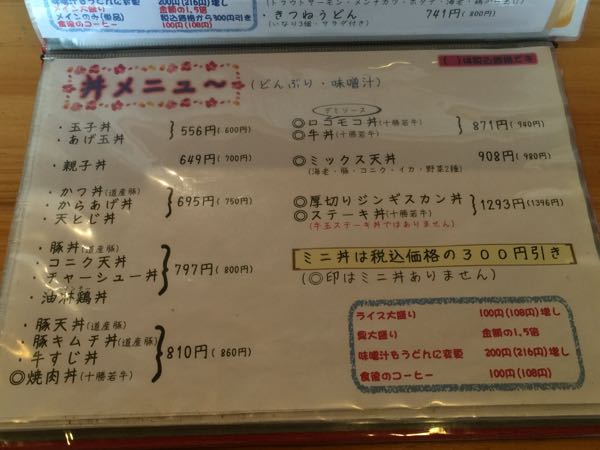 ライス大盛り 金額の1.5倍
メインのみ(単品) 税込価格から300円引き
食後のコーヒー 100円(108円)
・きつねうどん 741円(800円)
(いなり3個・サラダ付き)
丼メニュ〜
(どんぶり・味噌汁)
( )は税込価格です
・玉子丼
・あげ玉丼
556円(600円)
・親子丼 649円(700円)
・かつ丼(道産豚)
・からあげ丼
・天とじ丼
695円(750円)
・豚丼(道産豚)
・コニク天丼
・チャーシュー丼
・油淋鶏丼
797円(800円)
・豚天丼(道産豚)
・豚キムチ丼(道産豚)
・牛すじ丼
◎焼肉丼(十勝若牛)
810円(860円)
デミソース
◎ロコモコ丼(十勝若牛)
◎牛丼(十勝若牛)
871円(940円)
◎ミックス天丼 908円(980円)
(海老・豚・コニク・イカ・野菜2種)
◎厚切りジンギスカン丼
◎ステーキ丼(十勝若牛)
1293円(1396円)
(牛玉ステーキ丼ではありません)
ミニ丼は税込価格の300円引き
(◎印はミニ丼ありません)
ライス大盛り 100円(108円)増し
具大盛り 金額の1.5倍
味噌汁をうどんに変更 200円(216円)増し
食後のコーヒー 100円(108円)